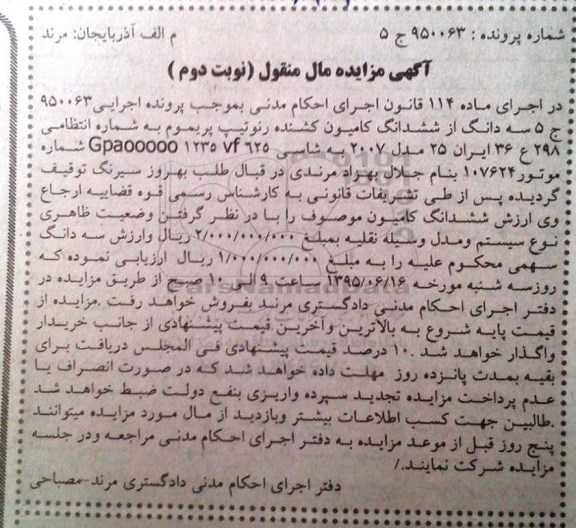 شماره پرونده : ۹۵۰۰۶۳ ج ۵ م الف آذربایجان: مرند
آگهی مزایده مال منقول (نوبت دوم )
در اجرای ماده ۱۱۴ قانون اجرای احکام مدنی بموجب پرونده اجرایی۹۵۰۰۶۳
ج ۵ سه دانگ از ششدانگ کامیون کشنده رنوتیپ پریموم به شماره انتظامی
۲۹۸ ع ۳۶ ایران ۲۵ مدل ۲۰۰۷ به شاسی Gpaooooo ۱۲۳۵ vf ٦٢٥ شماره
موتور۱۰۷۶۲۴ بنام جلال بهزاد مرندی در قبال طلب بهروز سیرنگ توقیف
گردیده پس از طی تشریفات قانونی به کارشناس رسمی قوه قضاییه ارجاع
وی ارزش ششدانگ کامیون موصوف را با در نظر گرفتن وضعیت ظاهری
نوع سیستم ومدل وسیله نقلیه بمبلغ ۲/۰۰۰/۰۰۰/۰۰۰ ریال وارزش سه دانگ
سهمی محکوم علیه را به مبلغ ۱/۰۰۰/۰۰۰/۰۰۰ ریال ارزیابی نموده که
روزسه شنبه مورخه ۱۳۹۵/۰۶/۱۶ ساعت ۹ الی ۱۰ صبح از طریق مزایده در
دفتر اجرای احکام مدنی دادگستری مرند بفروش خواهد رفت .مزایده از
قیمت پایه شروع به بالاترین وآخرین قیمت پیشنهادی از جانب خریدار
واگذار خواهد شد .۱۰ درصد قیمت پیشنهادی فی المجلس دریافت برای
بقیه بمدت پانزده روز مهلت داده خواهد شد که در صورت انصراف یا
عدم پرداخت مزایده تجدید سپرده واریزی بنفع دولت ضبط خواهد شد
.طالبین جهت کسب اطلاعات بیشتر وبازدید از مال مورد مزایده میتوانند
پنج روز قبل از موعد مزایده به دفتر اجرای احکام مدنی مراجعه ودر جلسه
مزایده شرکت نمایند./
دفتر اجرای احکام مدنی دادگستری مرند-مصباحی